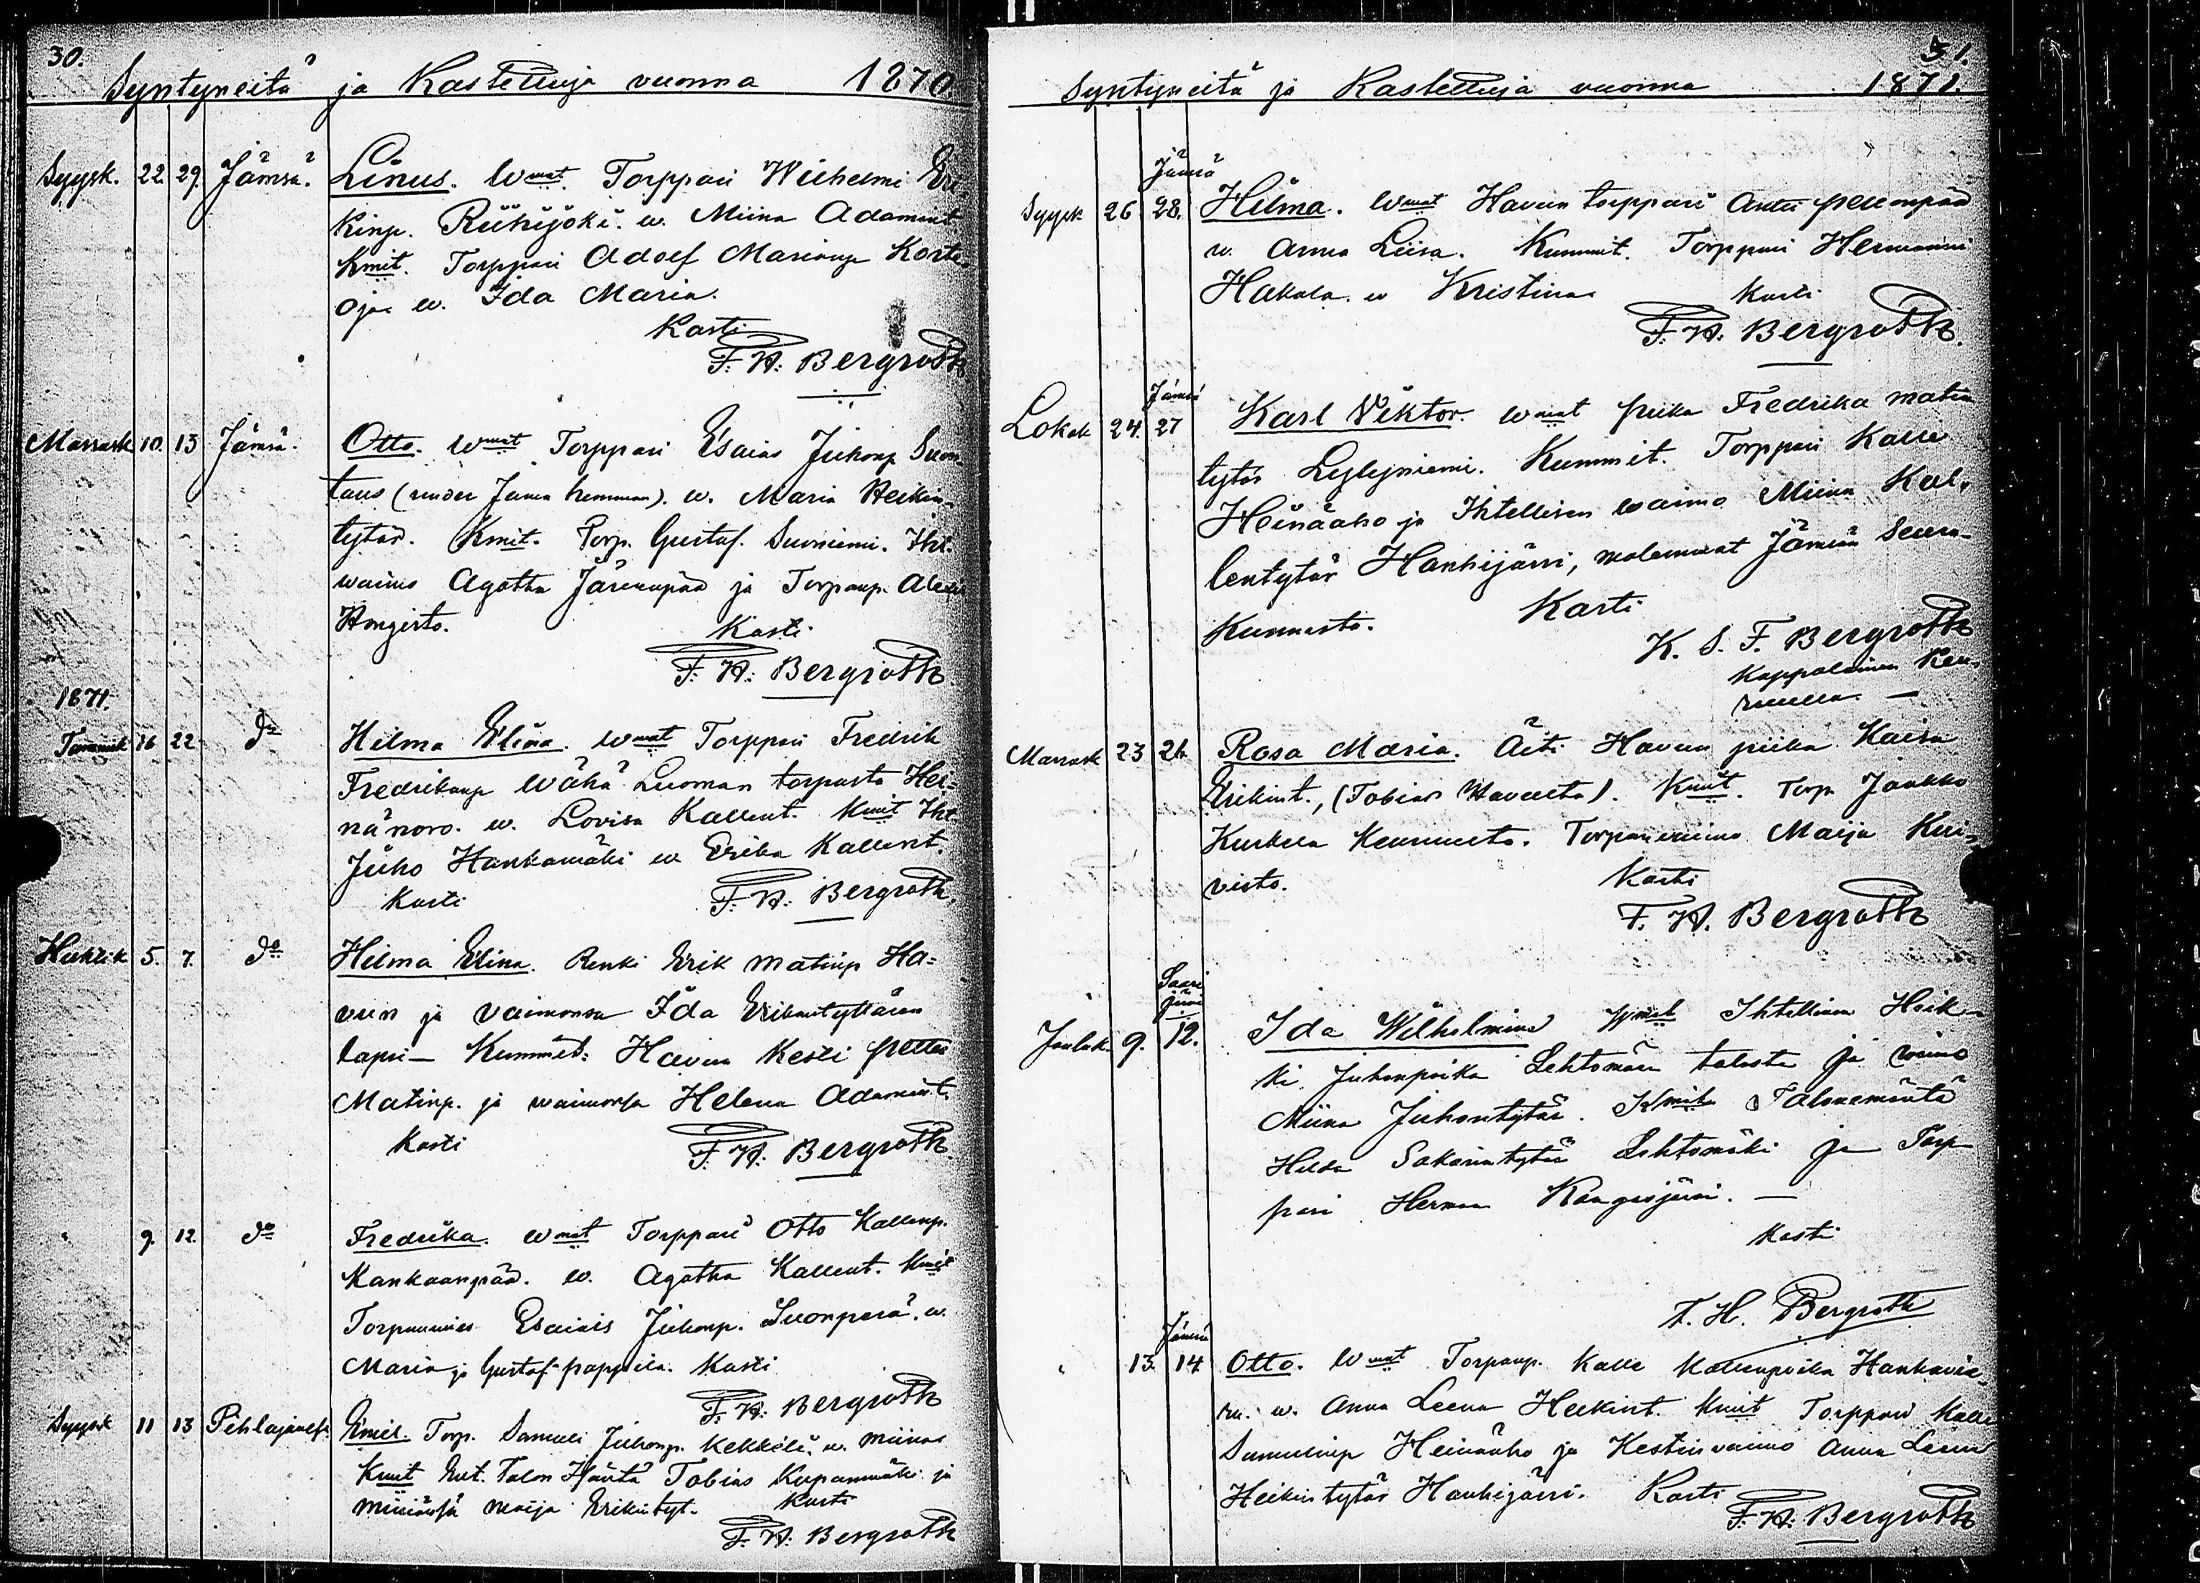 30.
Syntyneitä ja Kastettuja vuonna 1870
Syysk. 22. 29. Jämsä. Linus. Wmat. Torppari Wilhelmi Eri
kinp. Riihijoki. w. Miina Adamint
Kmit. Torppari Adolf Marianp Korte
oja w. Ida Maria.
Kasti
F. H. Bergroth
Marrask 10. 13 Jämsä. Otto. Wmat Torppari Esaias Juhonp Suon-
taus (under hemman). w. Maria Heikin-
tytär. Kmit. Torp. Gustaf. Suoniemi. Iht.
waimo Agatha Järvenpää ja Torpanp.
Hongisto. Kasti.
F. H. Bergroth
1871.
Tammik 16 22 do Hilma Elina. Wmat Torppari Fredrik
Fredrikanp Wähä Luoman torpasta Hei-
nänoro. w. Lovisa Kallent. Kmit Iht
Juho Hankamäki w Erika Kallent.
Kasti F. H. Bergroth
Huhtik 5. 7. do Hilma Elina. Renki Erik Matinp Ha-
vun ja vaimonsa Ida Erikintyttären
lapsi— Kummit: Havun Kesti Petter
Matinp. ja waimonsa Helena Adamint.
Kasti F. H. Bergroth.
" 9. 12. do Fredrika. Wmat Torppari Otto Kallenp.
Kankaanpää. w. Agatha Kallent. Kmit
Torpanmies Esaias Juhonp. Suonperä. w.
Maria ja Gustaf Pappila. Kasti
F. H. Bergroth
Syysk 11 13 Pihlajavesi Emil. Torp. Samuli Juhonp. Kekkilä. w. Miina
Kmit Ent. Talon Isäntä Tobias Kupanmäki ja
miniänsä Maija Erikintyt. Kasti
F. H. Bergroth
31.
Syntyneitä ja Kastettuja vuonna 1871.
Jämsä
Syysk 26 28. Hilma. Wmat Havun torppari Antti Petterinpää
w. Anna Liisa. Kummit. Torppari Hermanni
Hakala. w Kristina Kasti
F. H. Bergroth.
Jämsä
Lokak 24. 27 Karl Viktor. Wmat piika Fredrika Matin
tytär Lylyniemi. Kummit. Torppari Kalle
Heinäaho ja Ihtellisen waimo Miina Kal-
lentytär Hanhijärvi, molemmat Jämsän Seura-
Kunnasta. Kasti
K. S. F. Bergroth
Kappalainen Keu-
ruulla. —
Marrask 23 26 Rosa Maria. Äiti Havun piika Kaisa
Erikint., (Tobias Havulta). Kmit. Torp Jaakko
Kurkela Keuruulta. Torparinvaimo Marja Kui-
visto. Kasti
F. H. Bergroth
Saari
järvi
Jouluk. 9. 12. Ida Wilhelmina Wmat Ihtellinen Heik-
ki Juhonpoika Lehtomäen talosta ja waimo
Miina Juhontytär. Kmit. Talonemäntä
Hilda Sakarintytär Lehtomäki ja Torp
pari Herman Kangasjärvi. —
Kasti
F. H. Bergroth
Jämsä
" 13. 14 Otto. Wmat Torpanp. Kalle Kallenpoika Hankavie-
ru. w. Anna Leena Heikint. Kmit Torppari Kalle
Samulinp Heinäaho ja Kestinvaimo Anna Leena
Heikintytär Hanhijärvi. Kasti
F. H. Bergroth